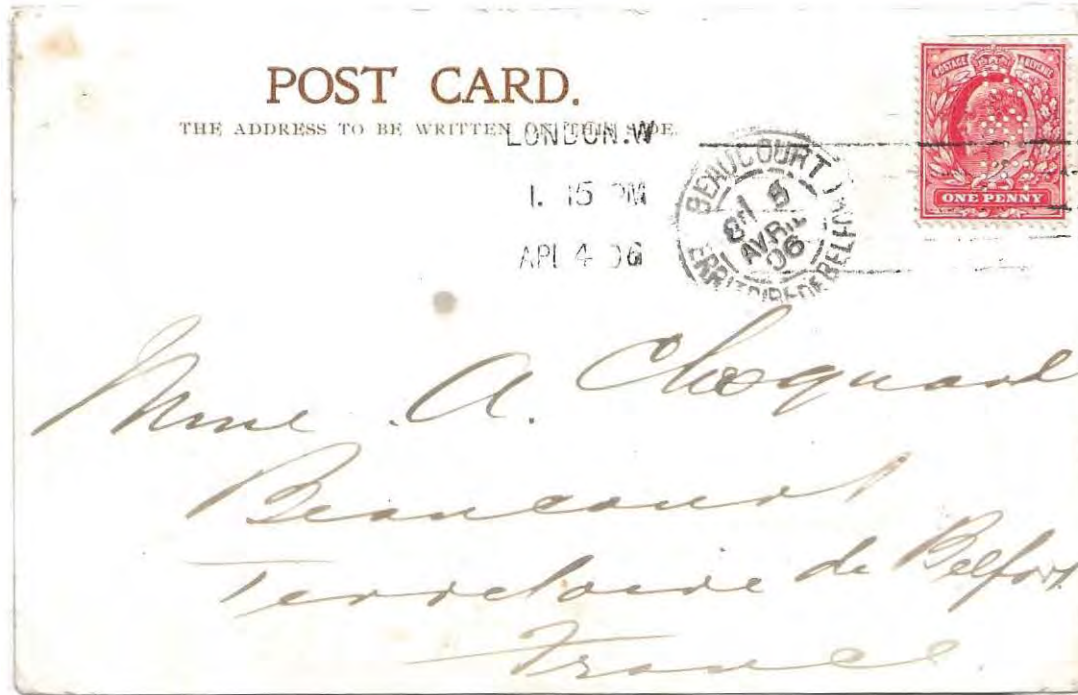 POST CARD.
THE ADDRESS TO BE WRITTEN ON THIS SIDE.
LONDON.W
1. 15 PM
APL 4 06
BEAUCOURT
AVRIL
06
TERRITOIRE DE BELFORT
POSTAGE & REVENUE
ONE PENNY
Mme A. Choquard
Beaucourt
Territoire de Belfort
France.